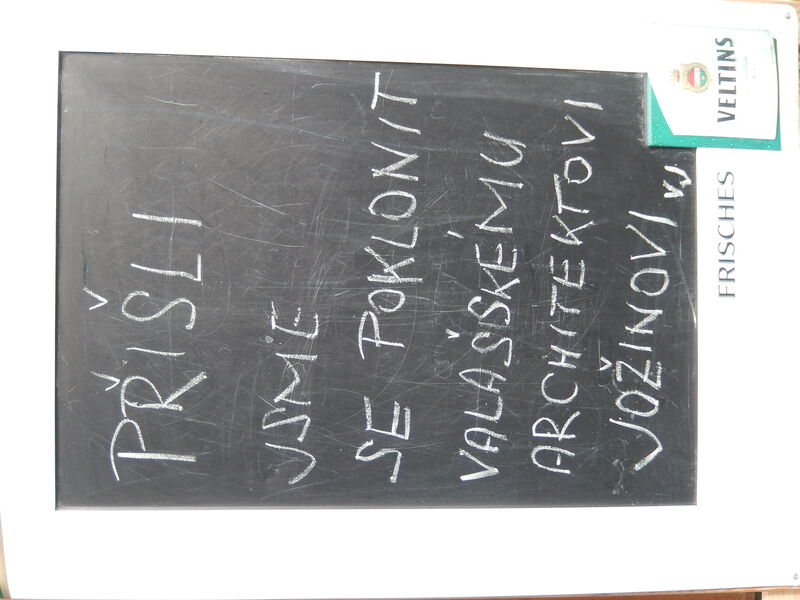 PŘIŠLI
JSME
SE POKLONIT
VALAŠSKÉMU
ARCHITEKTOVI
JOŽINOVI
FRISCHES
VELTINS